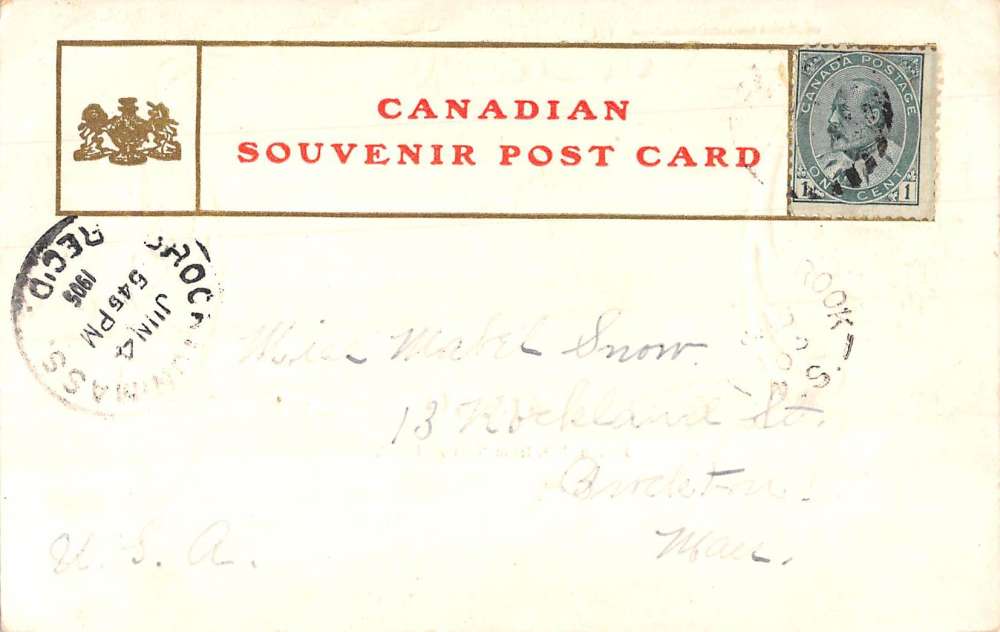 CANADIAN
SOUVENIR POST CARD
CANADA POSTAGE
ONE CENT
1 1
BROCKTON MASS.
JUN 4
545 PM
1905
REC'D.
ROOK
Miss Mabel Snow.
13 Rockland St.
Brockton.
Mass.
U. S. A.